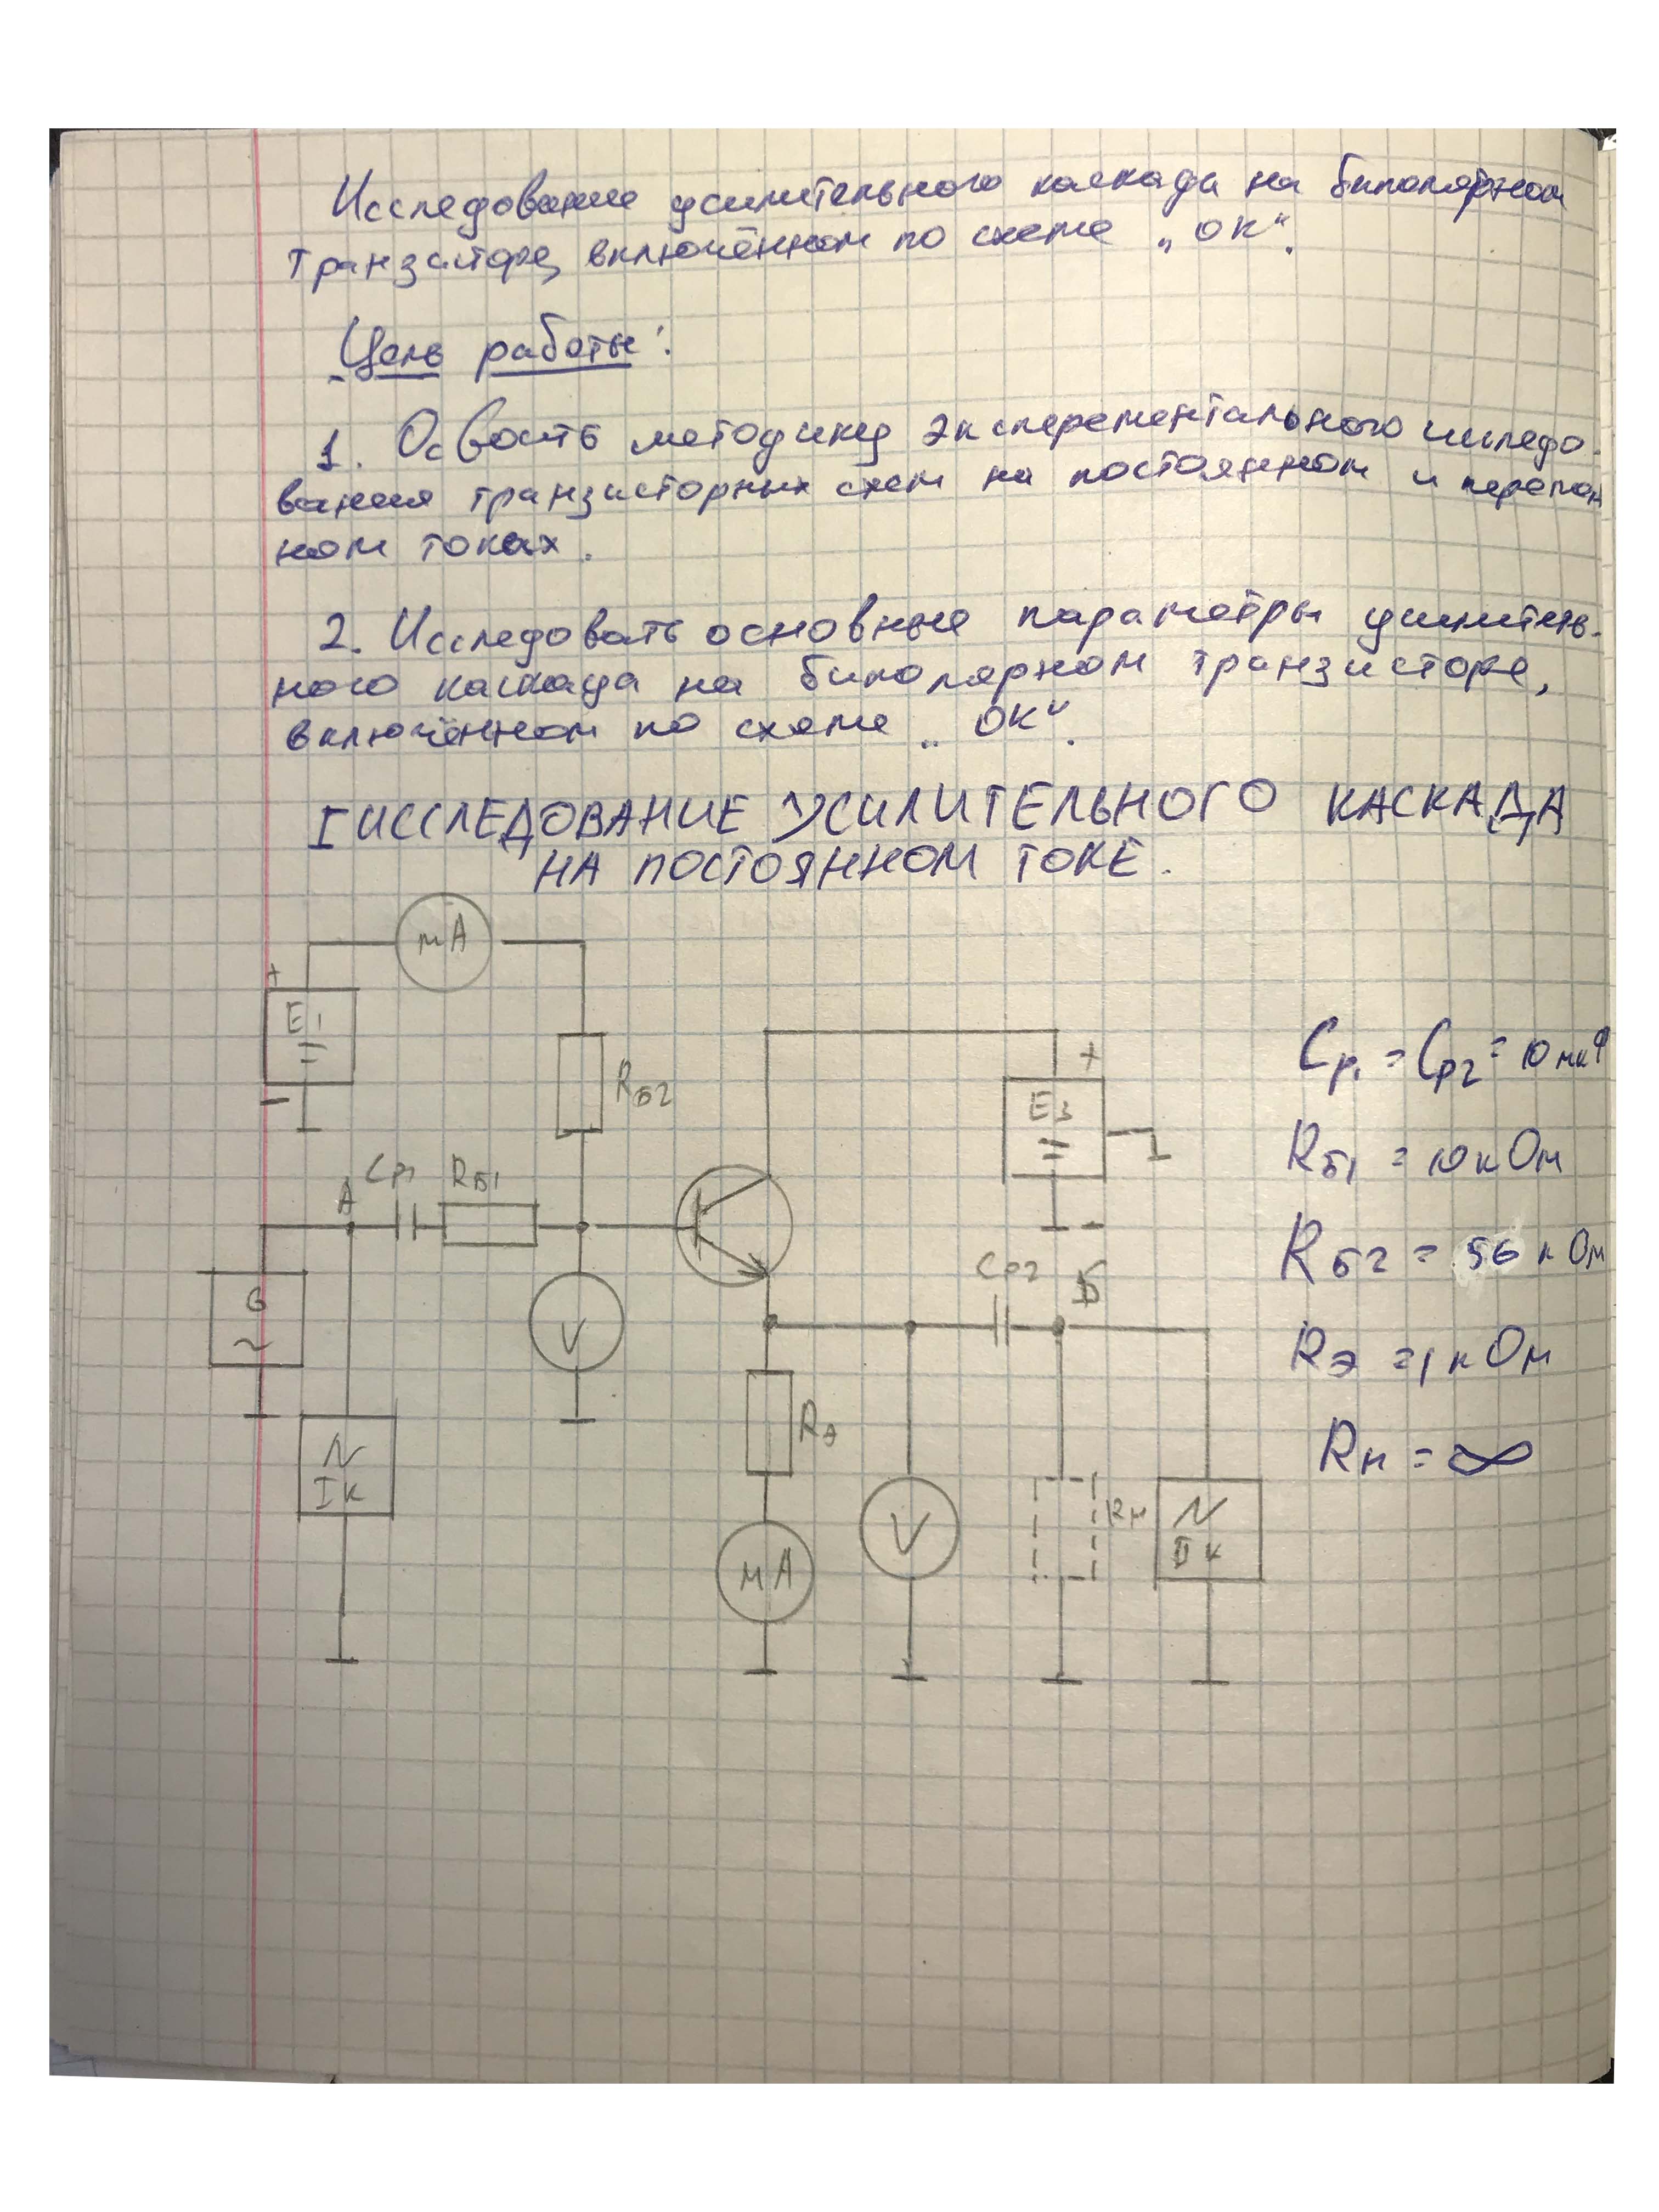 Исследование усилительного каскада на биполярном
транзисторе, включённом по схеме „ОК“.
Цель работы:
1. Освоить методику эксперементального исследо-
вания транзисторных схем на постоянном и перемен
ном токах.
2. Исследовать основные параметры усилитель-
ного каскада на биполярном транзисторе,
включённом по схеме „ОК“.
I ИССЛЕДОВАНИЕ УСИЛИТЕЛЬНОГО КАСКАДА
НА ПОСТОЯННОМ ТОКЕ.
мА
+
E1
=
−
RБ2
+
E3
=
−
A
Cp1
RБ1
G
~
V
Cp2
Б
N
I К
RЭ
мА
V
RН
N
II К
Cp1 = Cp2 = 10 мкФ
RБ1 = 10 кОм
RБ2 = 56 кОм
RЭ = 1 кОм
RН = ∞